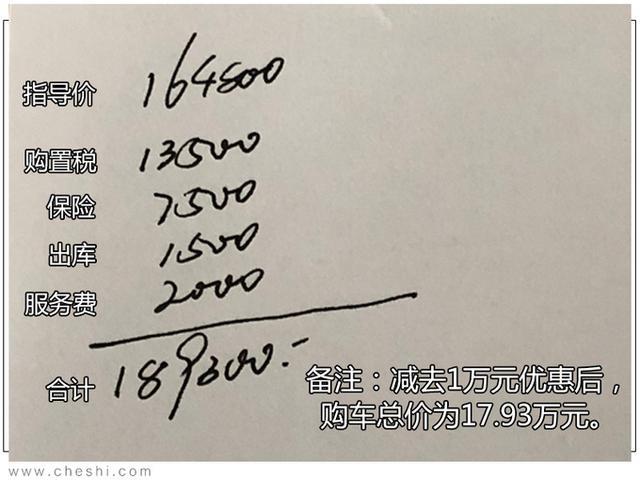 指导价 164800
购置税 13500
保险 7500
出库 1500
服务费 2000
合计 189300.-
备注：减去1万元优惠后，
购车总价为17.93万元。
www.cheshi.com